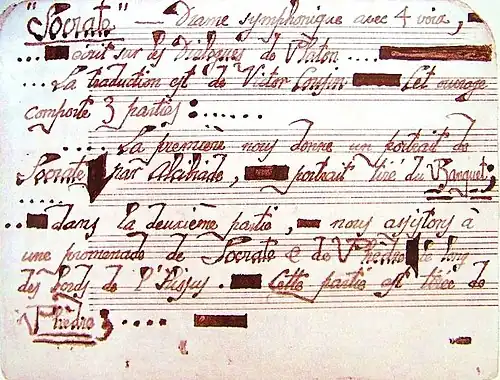 "Socrate" — Drame symphonique avec 4 voix,
... écrit sur des Dialogues de Platon ....
... La traduction est de Victor Cousin Cet ouvrage
comporte 3 parties : .....
.... La première nous donne un portrait de
Socrate par Alcibiade, portrait tiré du Banquet;
....
... dans la deuxième partie, nous assistons à
une promenade de Socrate & de Phèdre le long
des bords de l'Ilissus. Cette partie est tirée de
Phèdre; ....